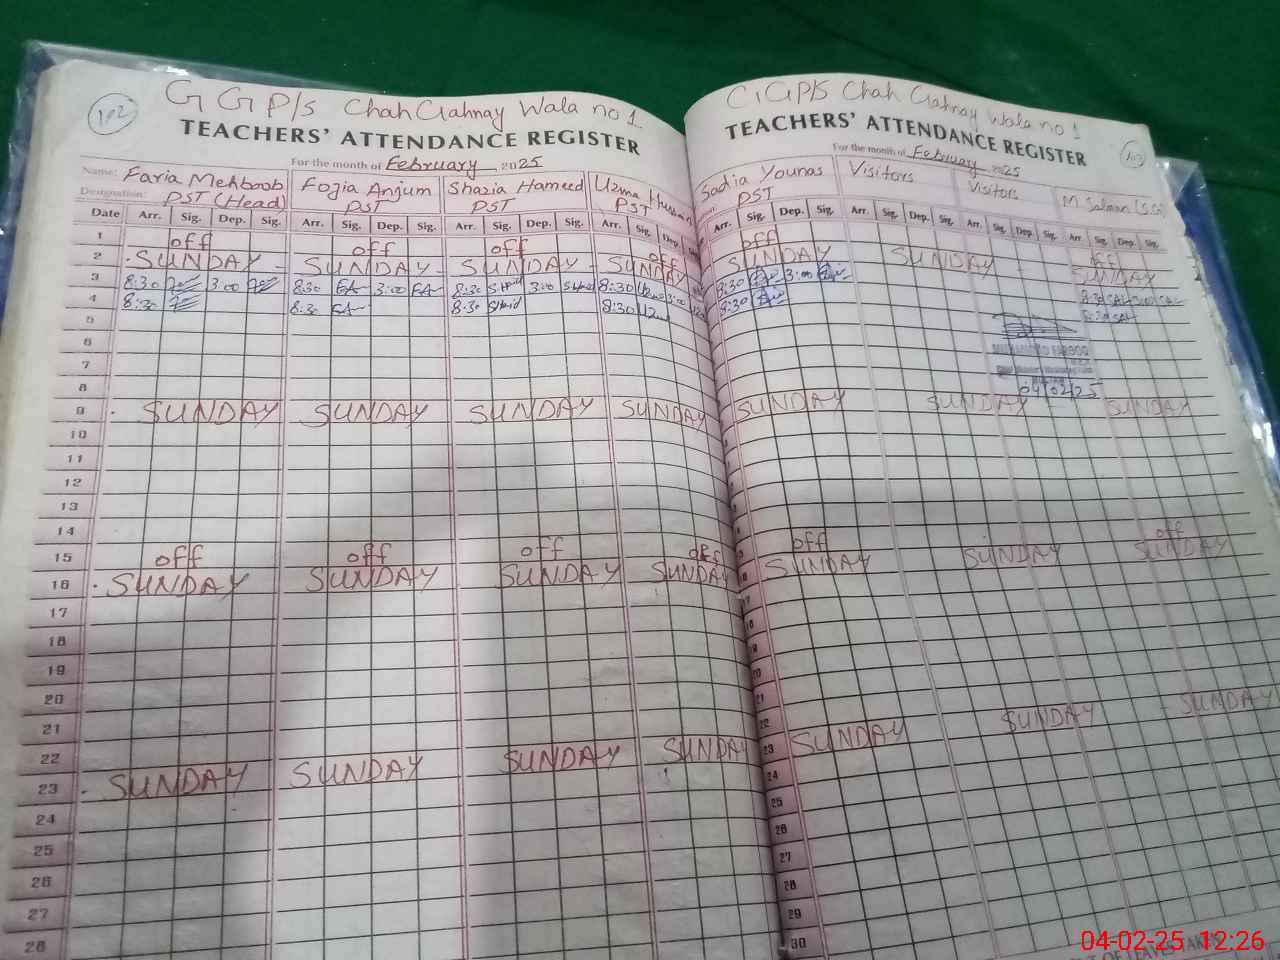 102
G GP/s Chah Gahnay Wala no 1
TEACHERS' ATTENDANCE REGISTER
For the month of February 2025
Name: Faria Mehboob Fozia Anjum Shazia Hameed Uzma
Designation: PST (Head) PST PST PST
Date Arr. Sig. Dep. Sig. Arr. Sig. Dep. Sig. Arr. Sig. Dep. Sig. Arr. Sig. Dep.
1 off off off off
2 SUNDAY SUNDAY SUNDAY SUNDAY
3 8:30 3:00 8:30 FA 3:00 FA 8:30 3:00 8:30 3:00
4 8:30 8:30 FA 8:30 8:30
5
6
7
8
9 SUNDAY SUNDAY SUNDAY SUNDAY
10
11
12
13
14
15 off off off off
16 SUNDAY SUNDAY SUNDAY SUNDAY
17
18
19
20
21
22
23 SUNDAY SUNDAY SUNDAY SUNDAY
24
25
26
27
28
GGP/S Chah Gahnay Wala no 1
TEACHERS' ATTENDANCE REGISTER
103
For the month of February 2025
Sadia Younas Visitors Visitors M Salman
PST
Arr. Sig. Dep. Sig. Arr. Sig. Dep. Sig. Arr. Sig. Dep. Sig. Arr Sig. Dep. Sig.
off off
SUNDAY SUNDAY SUNDAY
8:30 3:00 8:30 SAL SAL
8:30 8:30 SAL
04/02/25
SUNDAY SUNDAY SUNDAY
off off
SUNDAY SUNDAY SUNDAY
17
18
19
20
21
22
23 SUNDAY SUNDAY SUNDAY
24
25
26
27
28
29
30
04-02-25 12:26